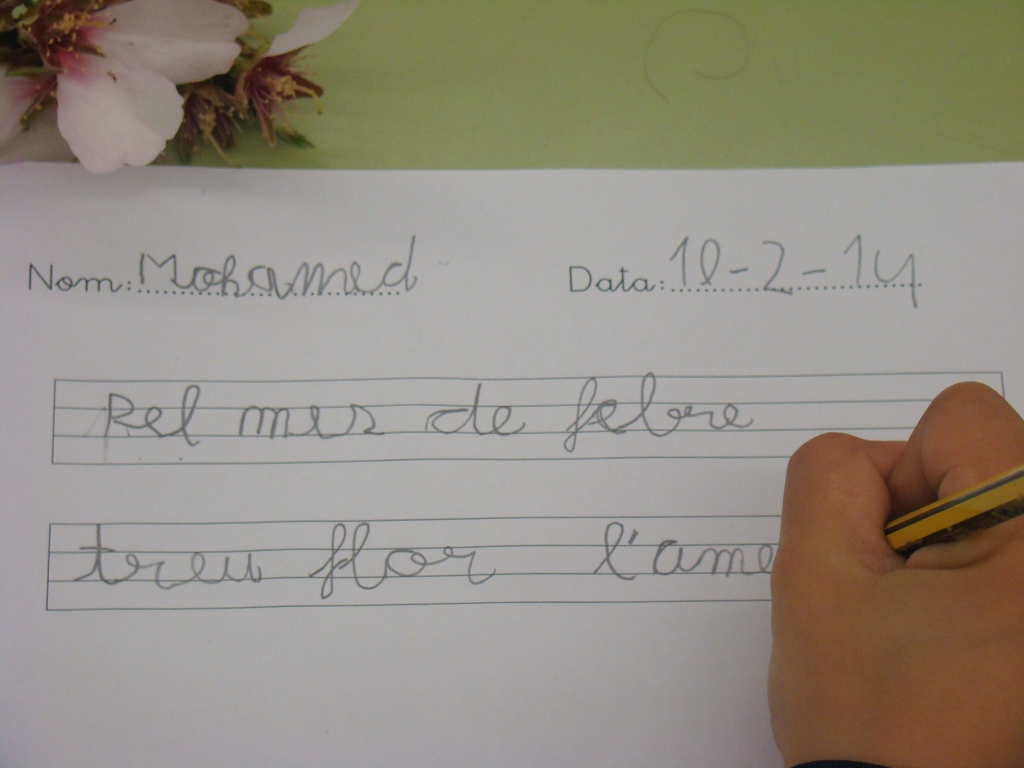 Nom: Mohamed Data: 10-2-14
Pel mes de febre
treu flor l'ame